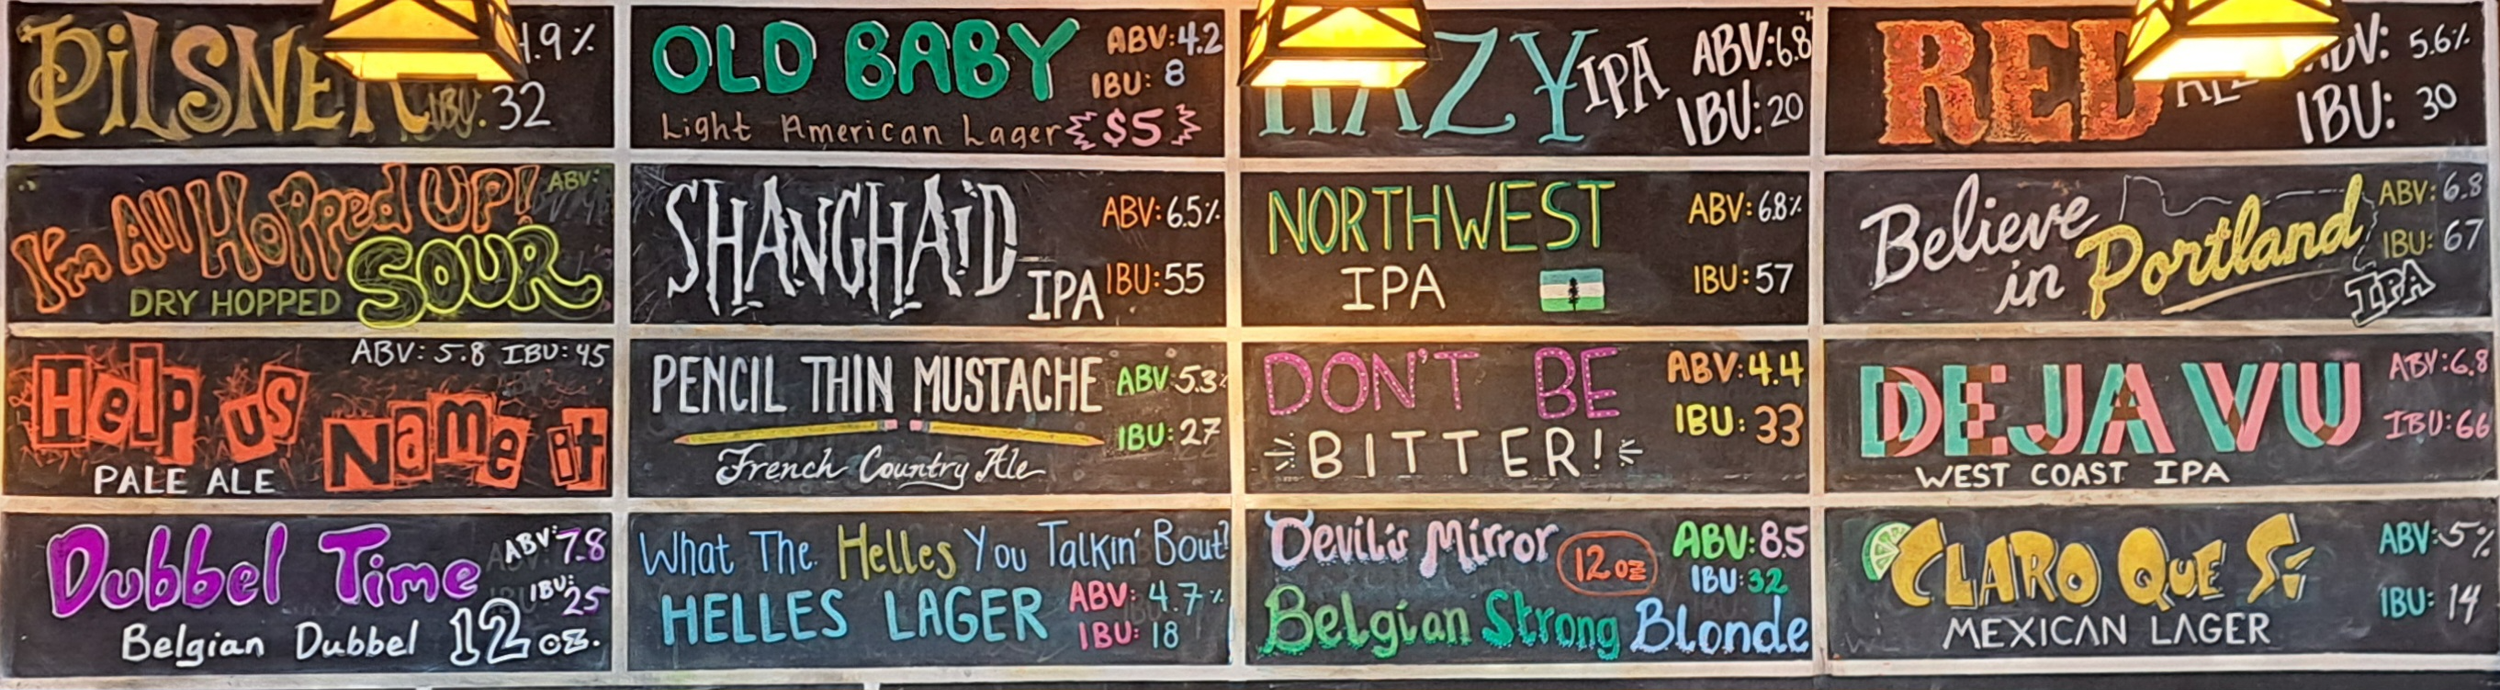 PILSNER .9%
IBU: 32
OLD BABY ABV: 4.2
IBU: 8
Light American Lager $5
HAZY IPA ABV: 6.8
IBU: 20
RED ALE ABV: 5.6%
IBU: 30
I'm All Hopped UP! ABV:
DRY HOPPED SOUR
SHANGHAiD ABV: 6.5%
IPA IBU: 55
NORTHWEST ABV: 6.8%
IPA IBU: 57
Believe ABV: 6.8
in Portland IBU: 67
IPA
ABV: 5.8 IBU: 45
Help us Name it
PALE ALE
PENCIL THIN MUSTACHE ABV 5.3%
IBU: 27
French Country Ale
DON'T BE ABV: 4.4
BITTER! IBU: 33
DEJA WU ABV: 6.8
IBU: 66
WEST COAST IPA
Dubbel Time ABV: 7.8
IBU: 25
Belgian Dubbel 12 oz.
What The Helles You Talkin' Bout?
HELLES LAGER ABV: 4.7%
IBU: 18
Devil's Mirror 12 oz ABV: 8.5
IBU: 32
Belgian Strong Blonde
CLARO QUE Sí ABV: 5%
IBU: 14
MEXICAN LAGER